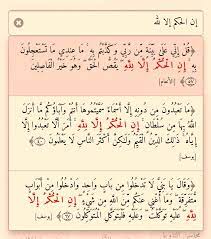 إن الحكم إلا لله
﴿قُلْ إِنِّي عَلَىٰ بَيِّنَةٍ مِّن رَّبِّي وَكَذَّبْتُم بِهِ ۚ مَا عِندِي مَا تَسْتَعْجِلُونَ
بِهِ ۚ إِنِ الْحُكْمُ إِلَّا لِلَّهِ ۖ يَقُصُّ الْحَقَّ ۖ وَهُوَ خَيْرُ الْفَاصِلِينَ
﴿٥٧﴾ [الأنعام]
﴿مَا تَعْبُدُونَ مِن دُونِهِ إِلَّا أَسْمَاءً سَمَّيْتُمُوهَا أَنتُمْ وَآبَاؤُكُم مَّا أَنزَلَ
اللَّهُ بِهَا مِن سُلْطَانٍ ۚ إِنِ الْحُكْمُ إِلَّا لِلَّهِ ۚ أَمَرَ أَلَّا تَعْبُدُوا إِلَّا
إِيَّاهُ ۚ ذَٰلِكَ الدِّينُ الْقَيِّمُ وَلَٰكِنَّ أَكْثَرَ النَّاسِ لَا يَعْلَمُونَ ﴿٤٠﴾
[يوسف]
﴿وَقَالَ يَا بَنِيَّ لَا تَدْخُلُوا مِن بَابٍ وَاحِدٍ وَادْخُلُوا مِنْ أَبْوَابٍ
مُّتَفَرِّقَةٍ ۖ وَمَا أُغْنِي عَنكُم مِّنَ اللَّهِ مِن شَيْءٍ ۖ إِنِ الْحُكْمُ إِلَّا
لِلَّهِ ۖ عَلَيْهِ تَوَكَّلْتُ ۖ وَعَلَيْهِ فَلْيَتَوَكَّلِ الْمُتَوَكِّلُونَ ﴿٦٧﴾ [يوسف]